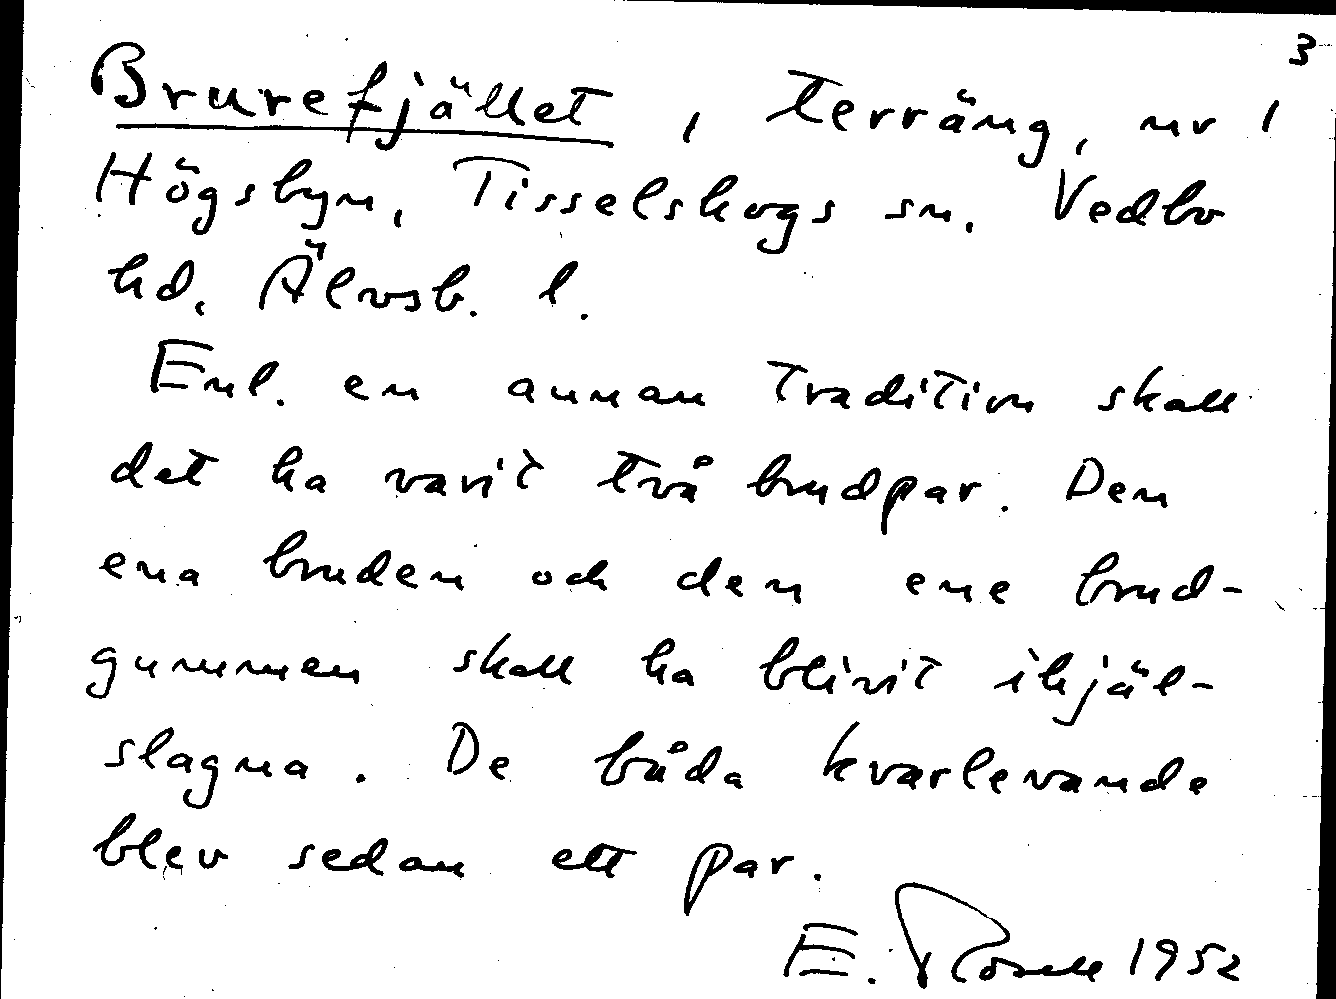 3
Brurefjället, terräng, nr 1
Högsbyn, Tisselskogs sn. Vedbo
hd. Älvsb. l.
Enl. en annan tradition skall
det ha varit två brudpar. Den
ena bruden och den ene brud-
gummen skall ha blivit ihjäl-
slagna. De båda kvarlevande
blev sedan ett par.
E. Rosell 1952